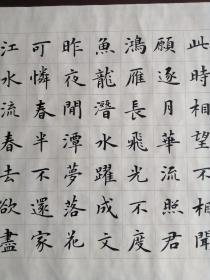 此時相望不相聞
願逐月華流照君
鴻雁長飛光不度
魚龍潛水躍成文
昨夜閒潭夢落花
可憐春半不還家
江水流春去欲盡